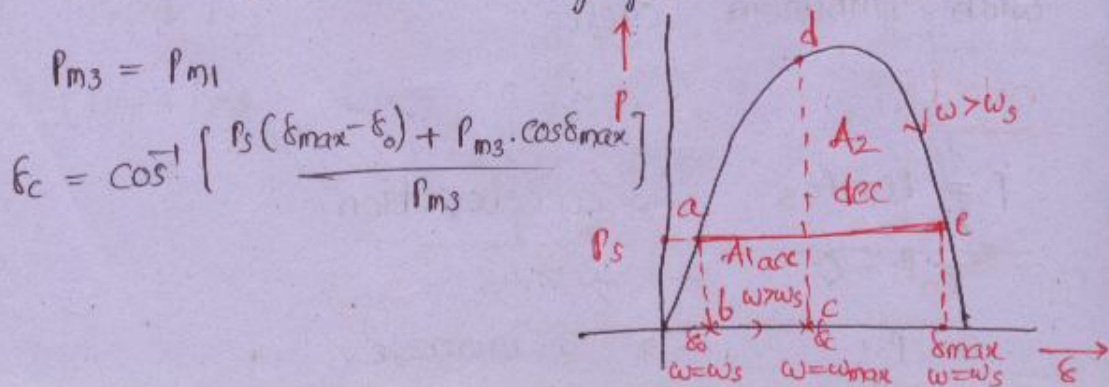 Pm3 = Pm1
δc = cos⁻¹ [ Ps(δmax-δ₀) + Pm3.cosδmax / Pm3 ]
P
d
ω>ωs
A2
dec
a
e
Ps
A1acc
b
ω>ωs
c
δ₀
δc
δmax
δ
ω=ωs
ω=ωmax
ω=ωs